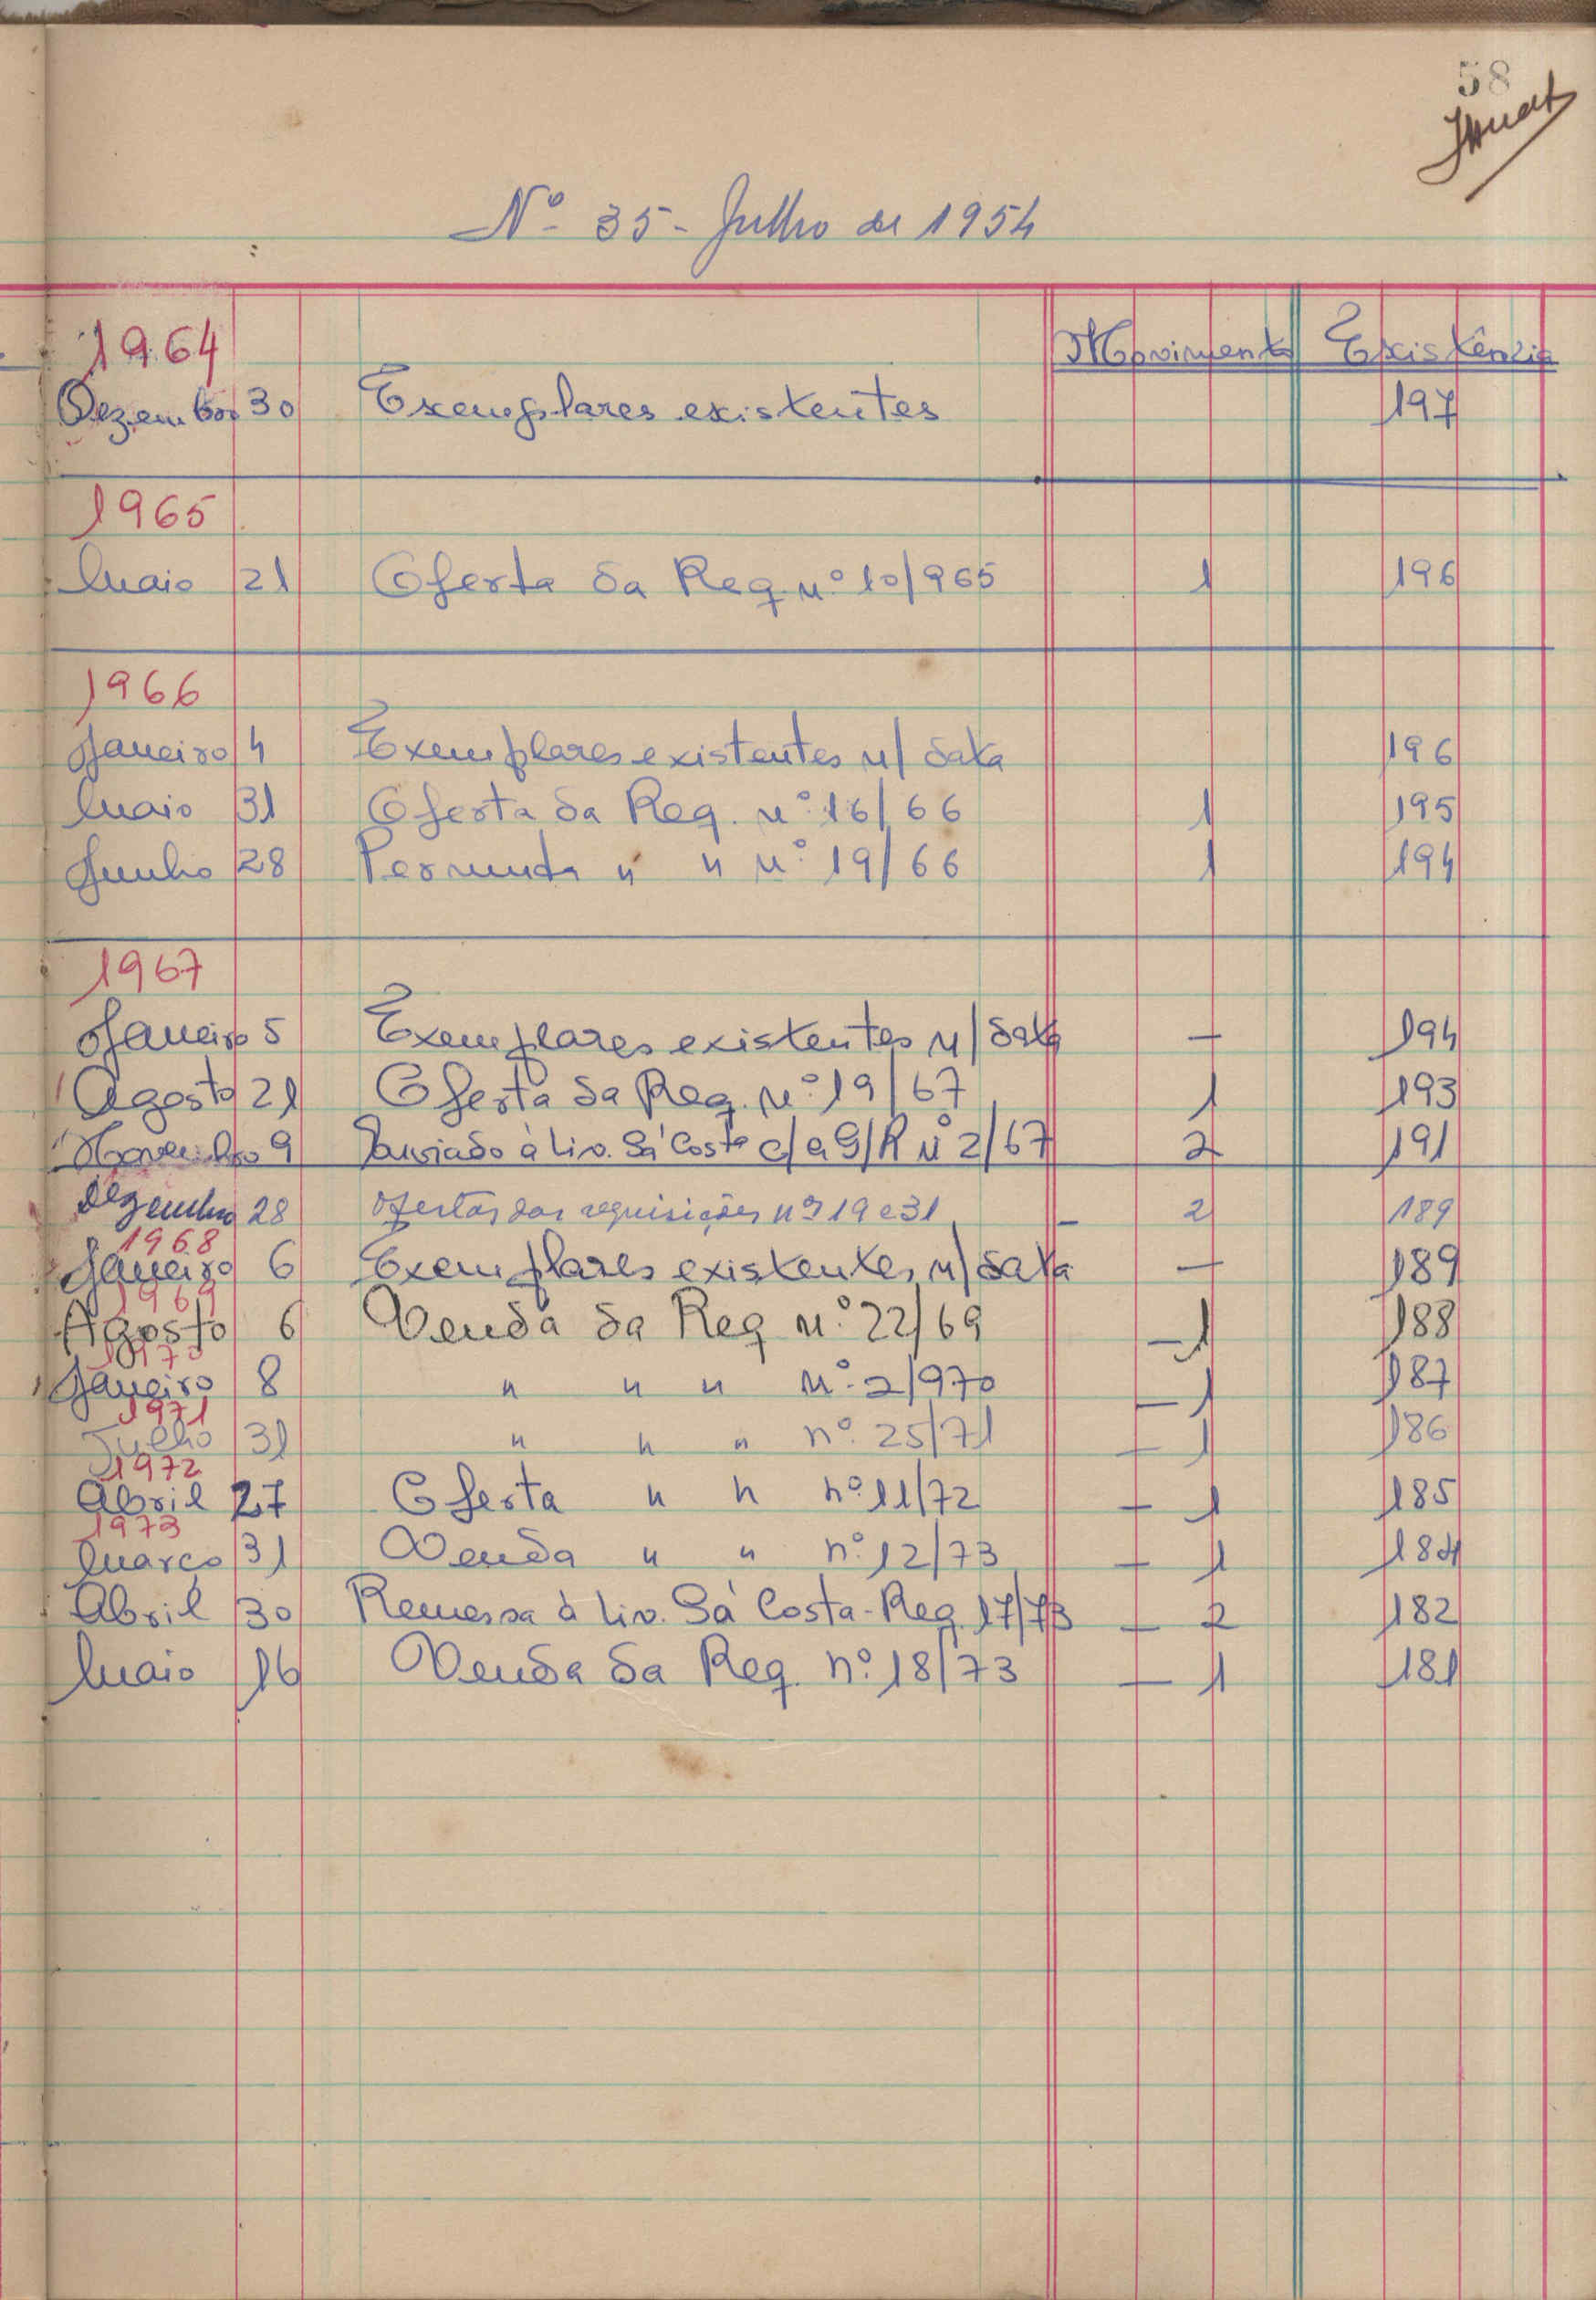 58
Nº 35 - Julho de 1954
Movimento Existência
1964
Dezembro 30 Exemplares existentes 197
1965
Maio 21 Oferta da Req. nº 10/965 1 196
1966
Janeiro 4 Exemplares existentes n/ data 196
Maio 31 Oferta da Req. nº 16/66 1 195
Junho 28 Permuta " " nº 19/66 1 194
1967
Janeiro 5 Exemplares existentes n/ data — 194
Agosto 21 Oferta da Req. nº 19/67 1 193
Novembro 9 Enviado à Liv. Sá Costa c/ a G/R nº 2/67 2 191
Dezembro 28 Ofertas das requisições nºs 19 e 31 — 2 189
1968
Janeiro 6 Exemplares existentes n/ data — 189
1969
Agosto 6 Venda da Req nº 22/69 — 1 188
1970
Janeiro 8 " " " nº 2/970 — 1 187
1971
Julho 31 " " " nº 25/71 — 1 186
1972
Abril 27 Oferta " " nº 11/72 — 1 185
1973
Março 31 Venda " " nº 12/73 — 1 184
Abril 30 Remessa à Liv. Sá Costa - Req. 17/73 — 2 182
Maio 16 Venda da Req. nº 18/73 — 1 181